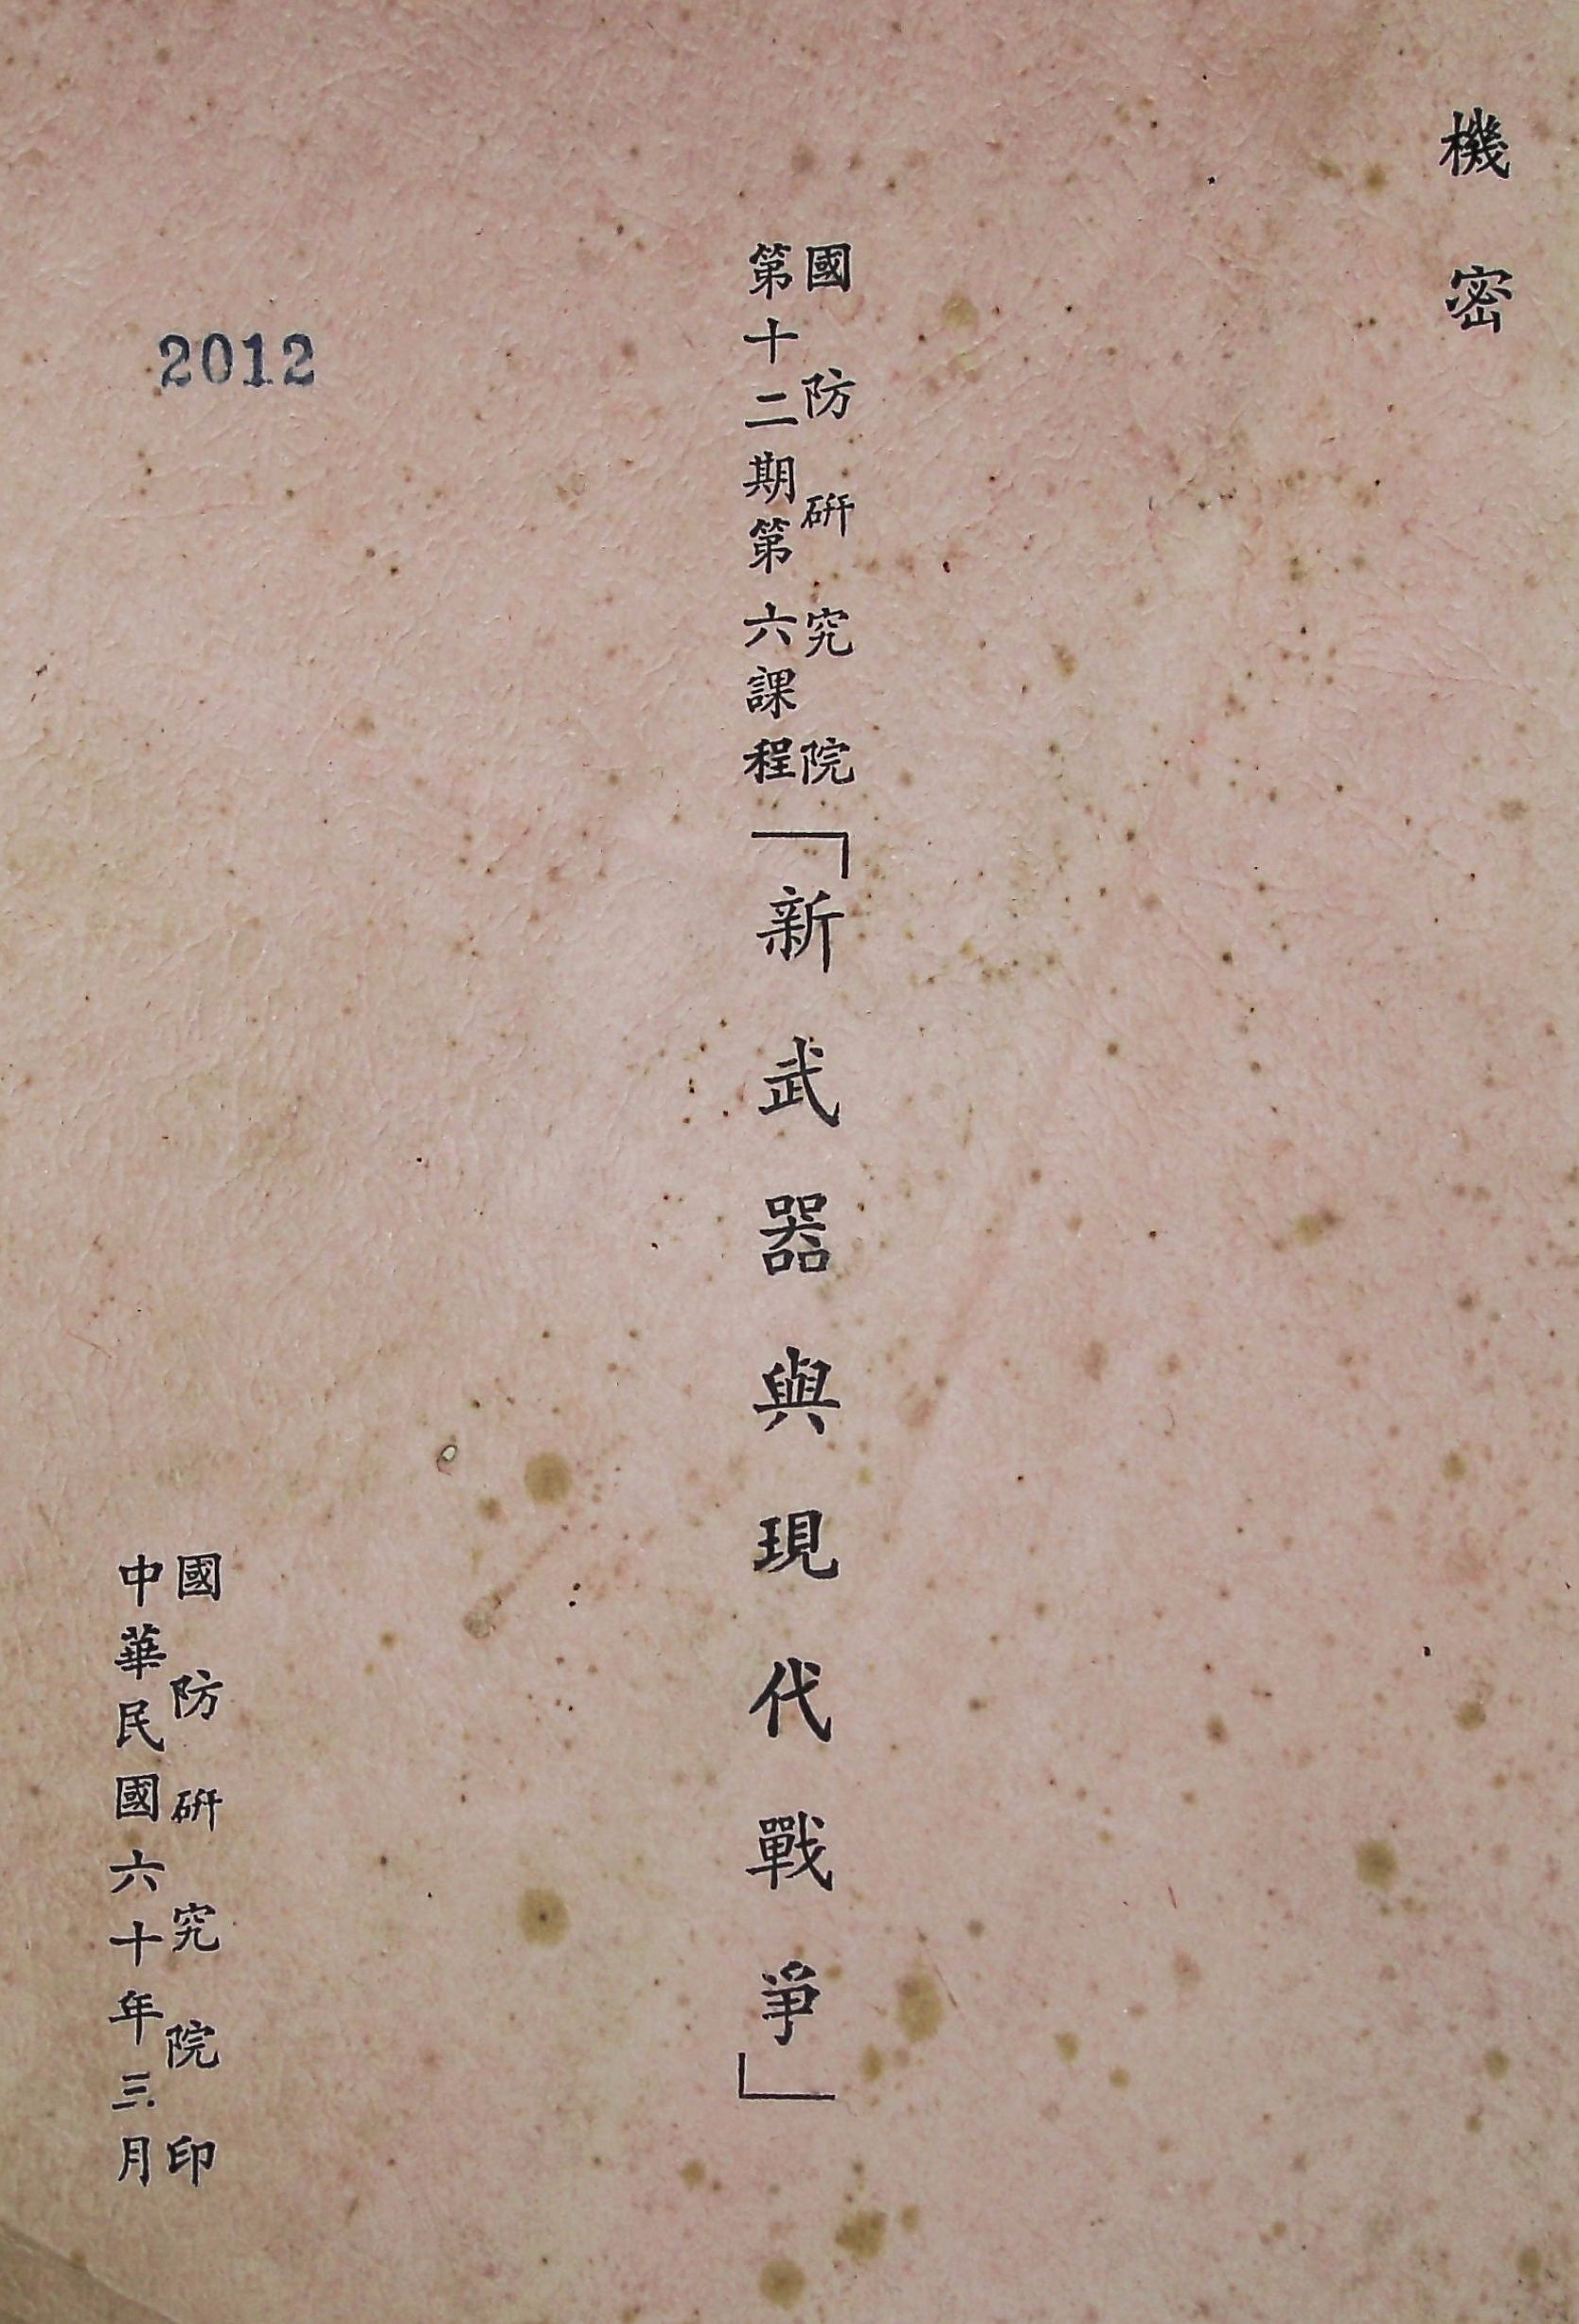 機密
國防研究院
第十二期第六課程
「新武器與現代戰爭」
2012
國防研究院印
中華民國六十年三月